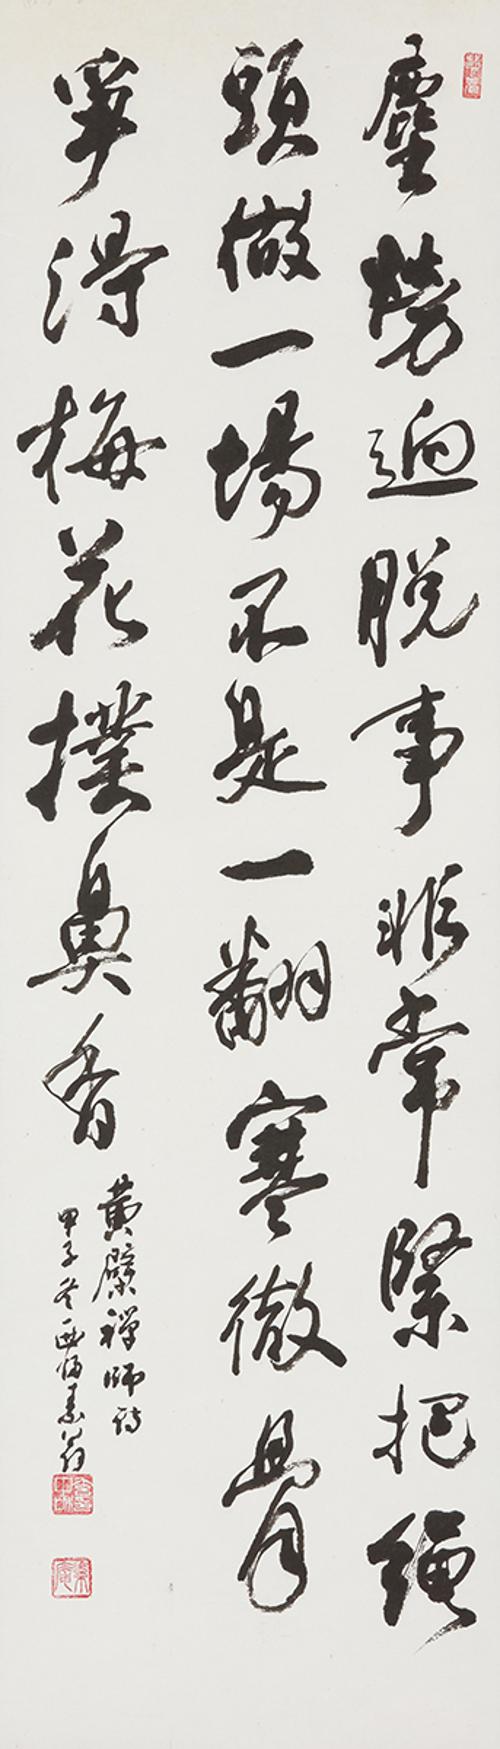 塵勞逈脫事非常緊把繩
頭做一場不是一翻寒徹骨
爭得梅花撲鼻香
黃檗禪師詩
甲子冬素翁